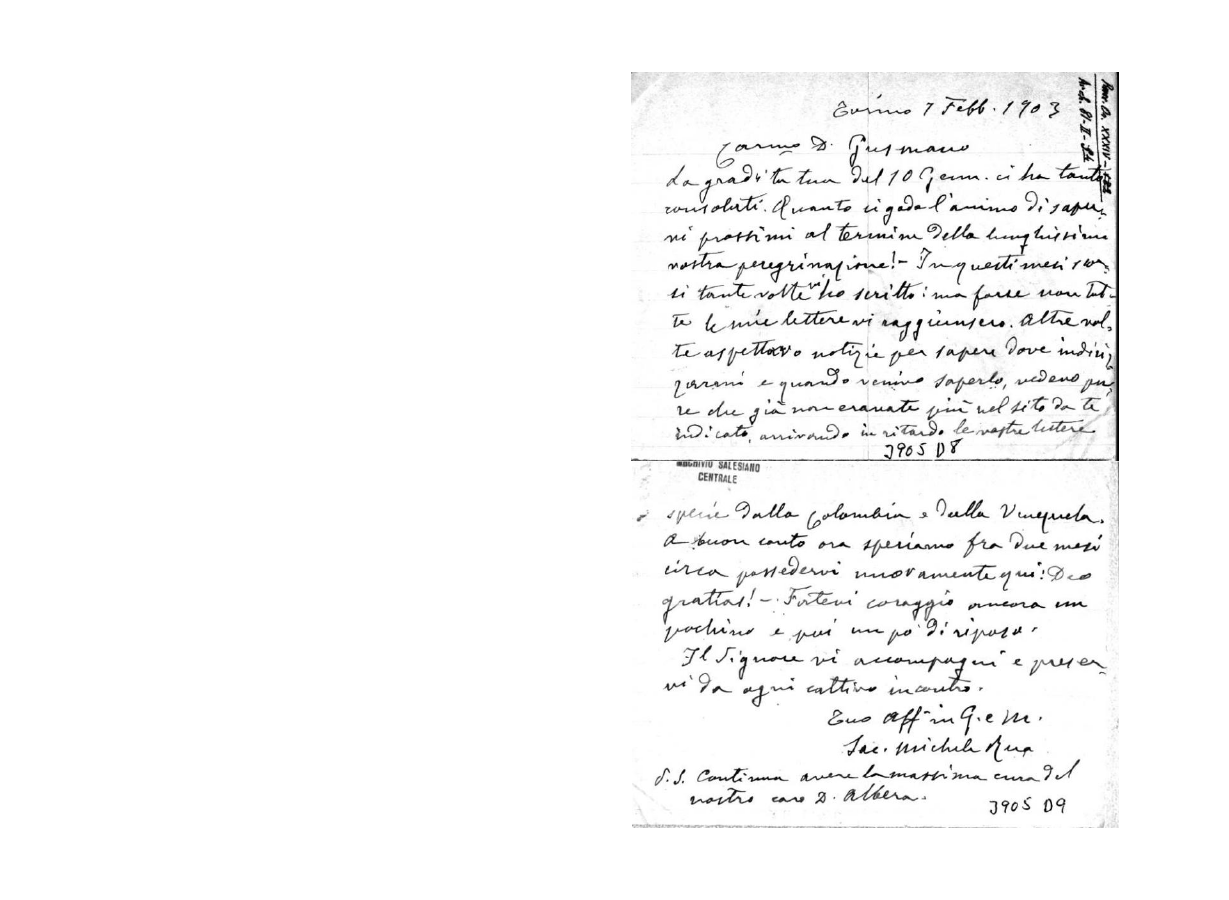 Torino 7 Febb. 1903
Carmo D. Gusmano
La gradita tua del 10 Genn. ci ha tanto
consolati. Quanto ci gode l'animo di saper-
vi prossimi al termine della lunghissima
vostra peregrinazione! - In questi mesi scor-
si tante volte vi ho scritto: ma forse non tut-
te le mie lettere vi raggiunsero. Altre vol-
te aspettavo notizie per sapere dove indiriz
zarmi e quando venivo saperlo, vedevo pu-
re che già non eravate più nel sito da te
indicato, arrivando in ritardo le vostre lettere
J905 D8
ARCHIVIO SALESIANO
CENTRALE
specie dalla Colombia e dalla Venezuela.
A buon conto ora speriamo fra due mesi
circa possedervi nuovamente qui: Deo
gratias! - Fatevi coraggio ancora un
pochino e poi un po' di riposo.
Il Signore vi accompagni e preser-
vi da ogni cattivo incontro.
Tuo aff in G. e M.
Sac. Michele Rua
P.S. Continua avere la massima cura del
nostro caro D. Albera.
J905 D9